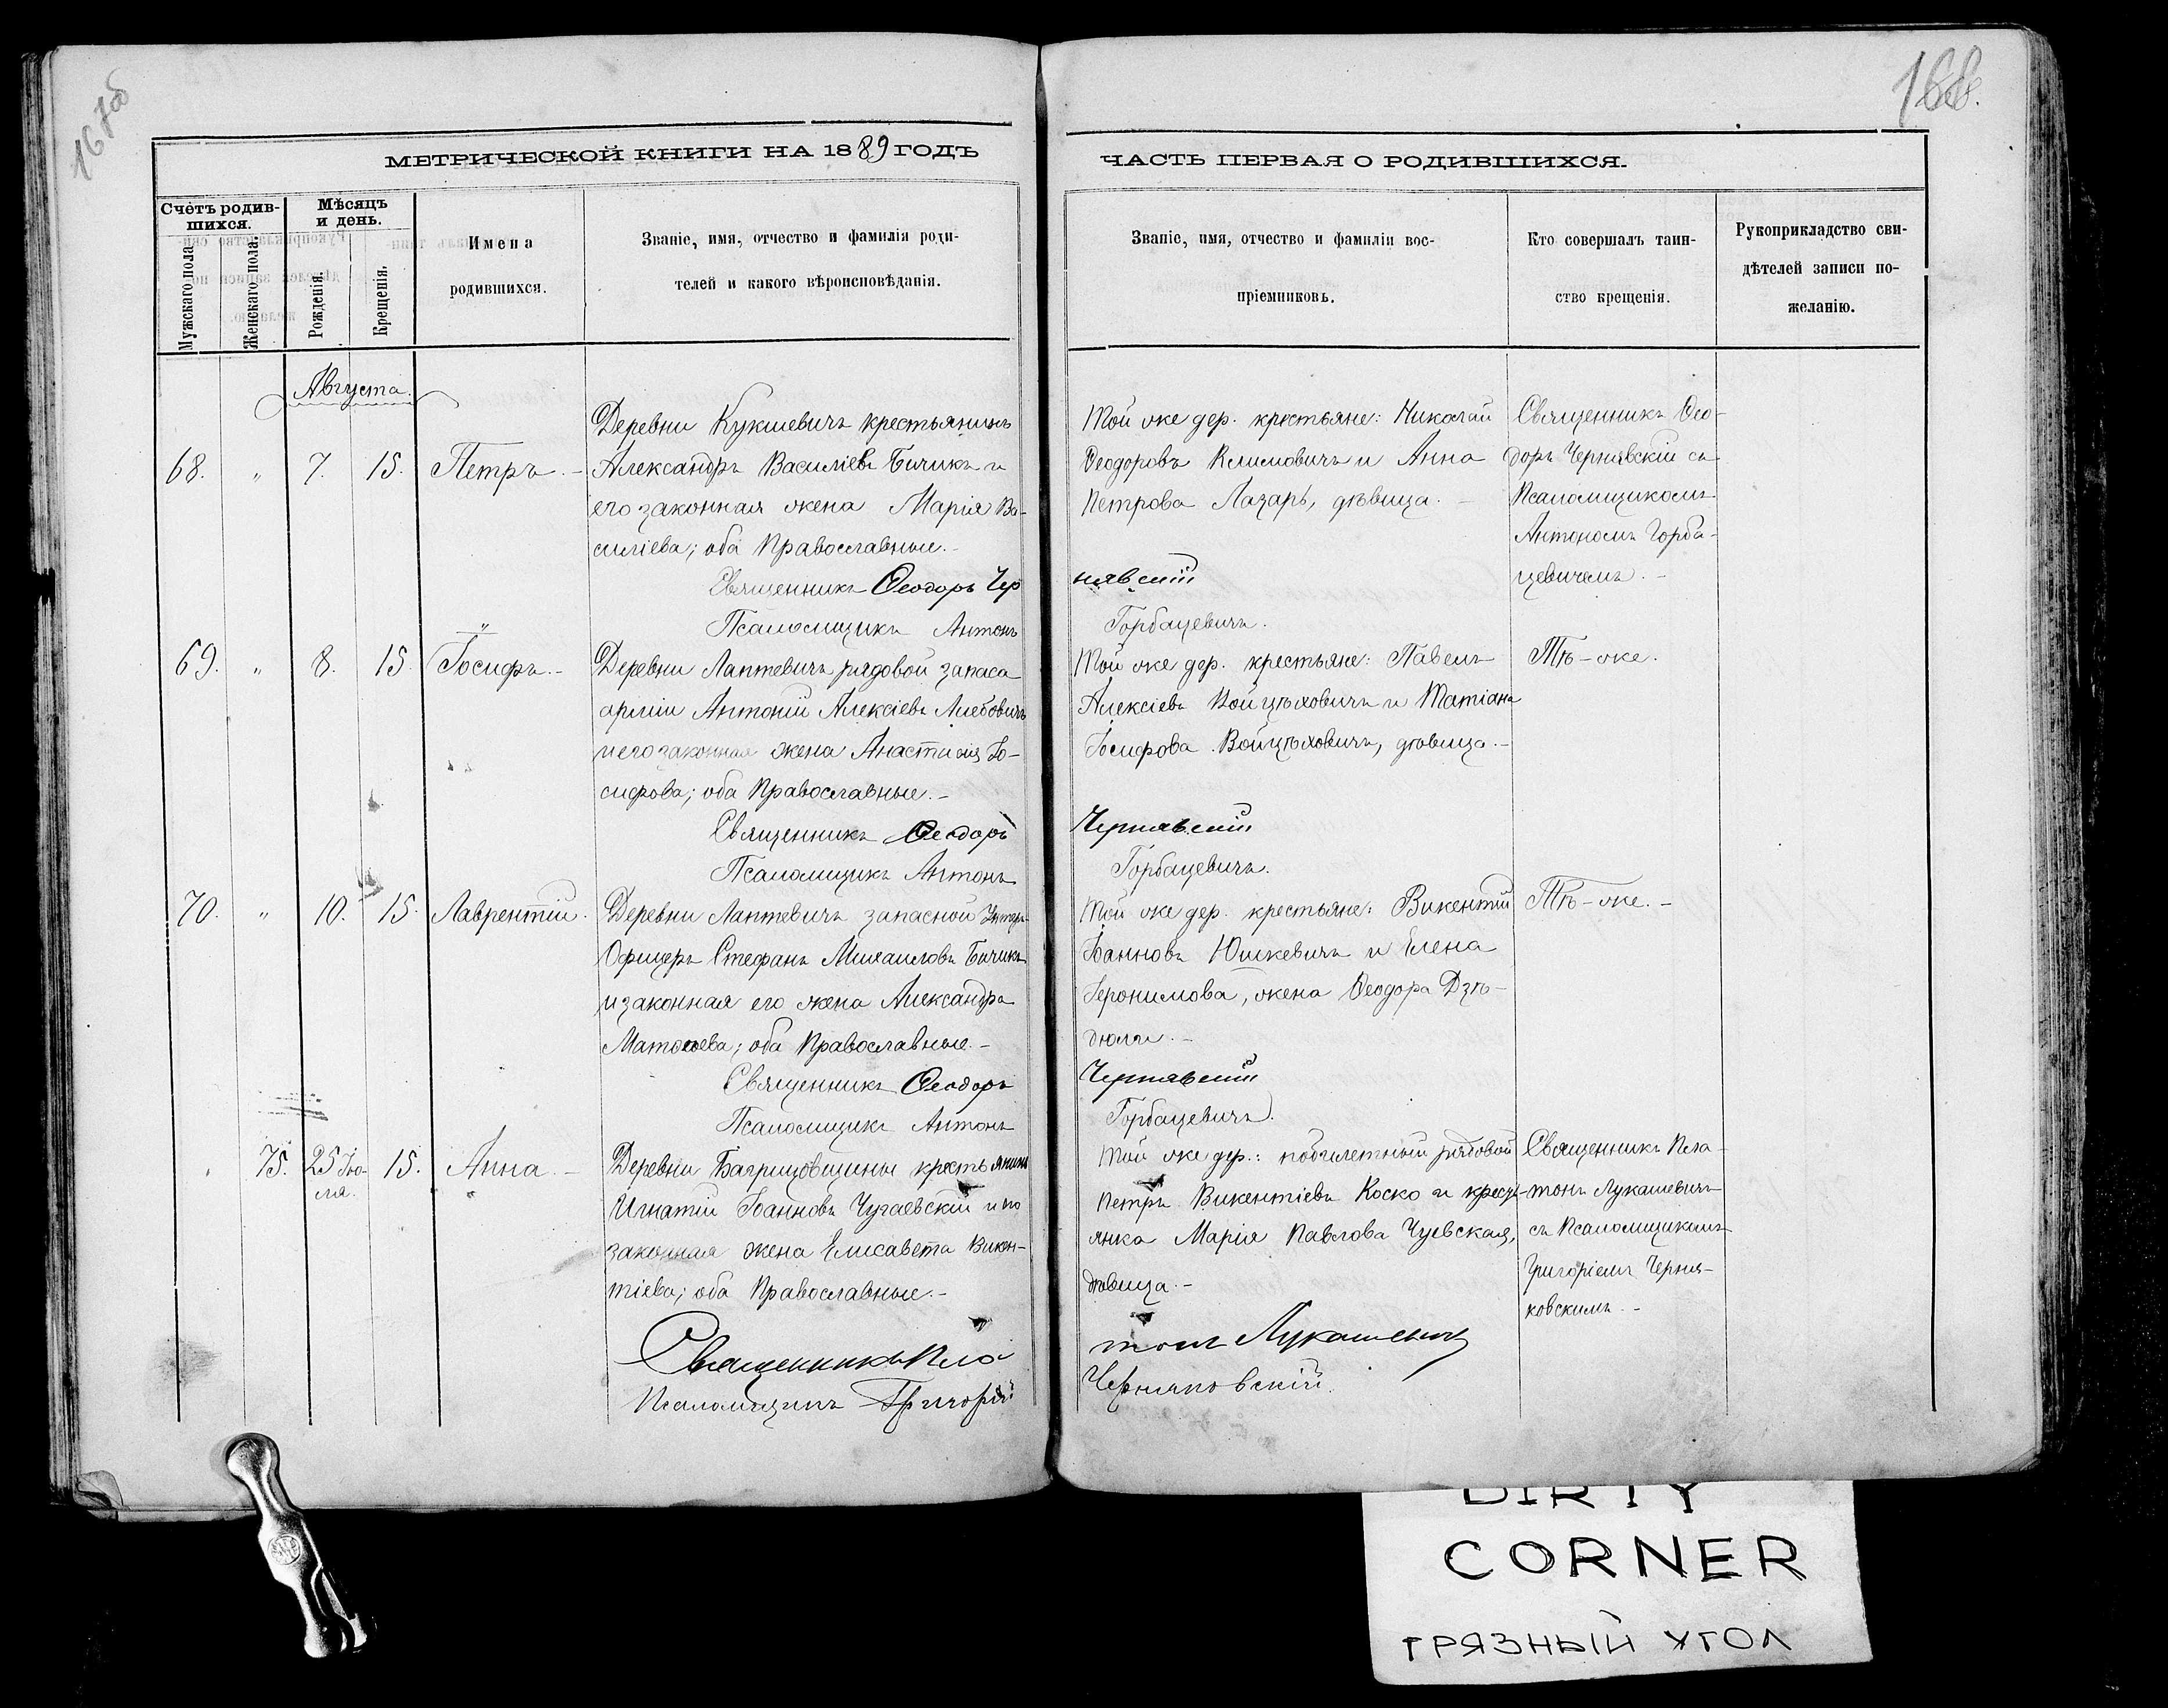 167об
168.
МЕТРИЧЕСКОЙ КНИГИ НА 1889 ГОДЪ
Счетъ родив-
шихся.
Мужскаго пола.
Женскаго пола.
Мѣсяцъ
и день.
Рожденія.
Крещенія.
Имена
родившихся.
Званіе, имя, отчество и фамилія роди-
телей и какого вѣроисповѣданія.
ЧАСТЬ ПЕРВАЯ О РОДИВШИХСЯ.
Званіе, имя, отчество и фамиліи вос-
пріемниковъ.
Кто совершалъ таин-
ство крещенія.
Рукоприкладство сви-
дѣтелей записи по-
желанію.
Августа.
68. " 7. 15. Петръ. -
Деревни Кукшевичъ крестьянинъ
Александръ Василіевъ Бичикъ и
его законная жена Марія Ва-
силіева; оба Православные. -
Священникъ Ѳеодоръ Чер
Псаломщикъ Антонъ
Той же дер. крестьяне: Николай
Ѳеодоровъ Климовичъ и Анна
Петрова Лазарь, дѣвица. -
нявскій
Горбацевичъ.
Священникъ Ѳео-
доръ Чернявскій съ
Псаломщикомъ
Антономъ Горба-
цевичемъ. -
69. " 8. 15. Іосифъ. -
Деревни Лаптевичъ рядовой запаса
арміи Антоній Алексіевъ
и его законная жена Анастасія Іо-
сифова; оба Православные. -
Священникъ Ѳеодоръ
Псаломщикъ Антонъ
Той же дер. крестьяне: Павелъ
Алексіевъ Войцѣховичъ и Татіана
Іосифова Войцѣховичъ, дѣвица. -
Чернявскій
Горбацевичъ.
Тѣ-же.
70. " 10. 15. Лаврентій.
Деревни Лаптевичъ запасной Унтеръ-
Офицеръ Стефанъ Михаиловъ Бичикъ
и законная его жена Александра
Матѳеева; оба Православные. -
Священникъ Ѳеодоръ
Псаломщикъ Антонъ
Той же дер. крестьяне: Викентій
Іоанновъ Юшкевичъ и Елена
Іеронимова, жена Ѳеодора Дзѣ-
дюли. -
Чернявскій
Горбацевичъ.
Тѣ-же. -
75. 25 Ію-
ля. 15. Анна. -
Деревни Багримовщины крестьянинъ
Игнатій Іоанновъ Чугаевскій и его
законная жена Елисавета Викен-
тіева; оба Православные. -
Священникъ Пла
Псаломщикъ Григорій
Той же дер.: побилетный рядовой
Петръ Викентіевъ Коско и кресть-
янка Марія Павлова Чуевская,
дѣвица. -
тонъ Лукашевичъ
Черняковскій.
Священникъ Пла-
тонъ Лукашевичъ
съ Псаломщикомъ
Григоріемъ Черня-
ковскимъ. -
DIRTY
CORNER
ГРЯЗНЫЙ УГОЛ